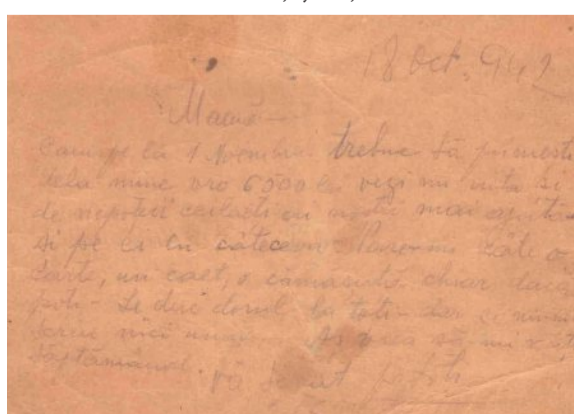 18 Oct. 942
Mamă
Cam pe la 1 Noembrie trebue să primești
dela mine vro 6500 lei vezi nu uita și
de nepoței ceilalți cu mai
și pe ei cu câteceva câte o
carte, un caet, o cămășuță chiar dacă
poți. Le duc dorul la toți dar
scriu nici Aș vrea să-mi
săptămânal. Vă sărut pe toți